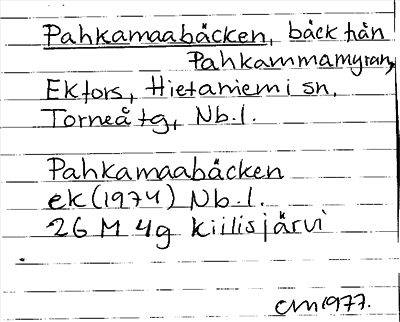 Pahkamaabäcken, bäck från
Pahkammamyran,
Ekfors, Hietaniemi sn,
Torneå tg, Nb.l.
Pahkamaabäcken
ek (1974) Nb.l.
26 M 4g Kiilisjärvi
CM 1977.